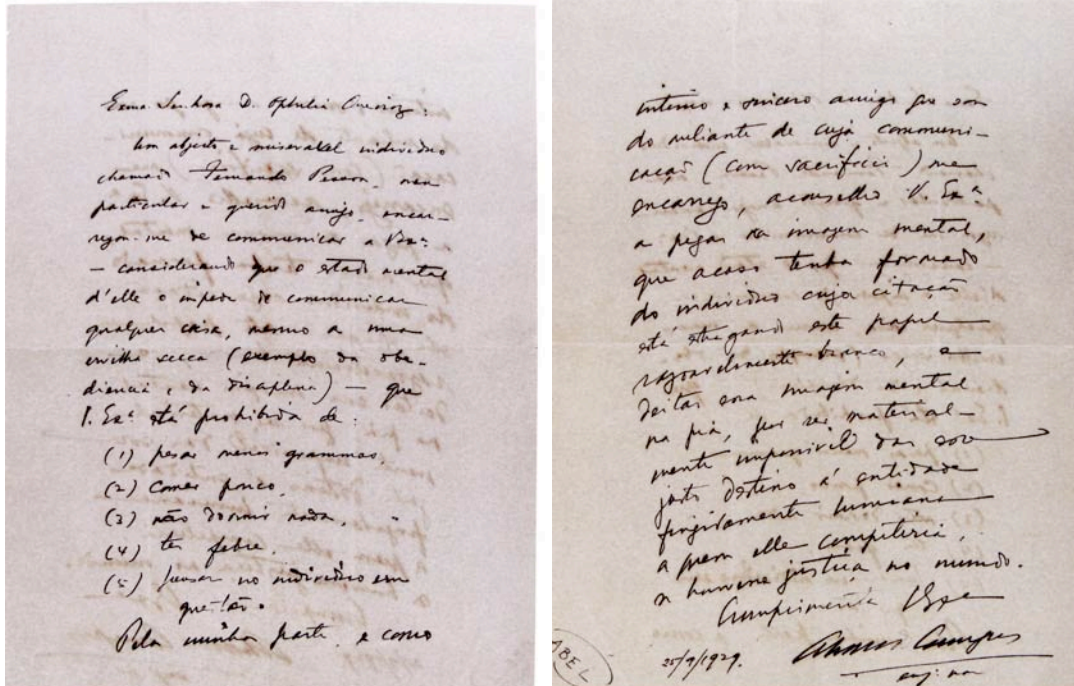 Exma Senhora D. Ophelia Queiroz:
Um abjecto e miseravel individuo
chamado Fernando Pessoa, meu
particular e querido amigo, encar-
regou-me de communicar a V. Exª
— considerando que o estado mental
d'elle o impede de communicar
qualquer coisa, mesmo a uma
ervilha secca (exemplo da obe-
diencia e da disciplina) — que
V. Exª está prohibida de:
(1) pesar menos grammas,
(2) comer pouco,
(3) não dormir nada,
(4) ter febre,
(5) pensar no individuo em
questão.
Pela minha parte, e como
intimo e sincero amigo que sou
do meliante de cuja communi-
cação (com sacrificio) me
encarrego, aconselho V. Exª
a pegar na imagem mental,
que acaso tenha formado
do individuo cuja citação
está estragando este papel
razoavelmente branco, e
deitar essa imagem mental
na pia, por ser material-
mente impossivel dar esse
justo destino á entidade
fingidamente humana
a quem elle competiria,
se houvesse justiça no mundo.
Cumprimenta V. Exª
Alvaro de Campos
eng. naval
25/9/1929.
ABEL